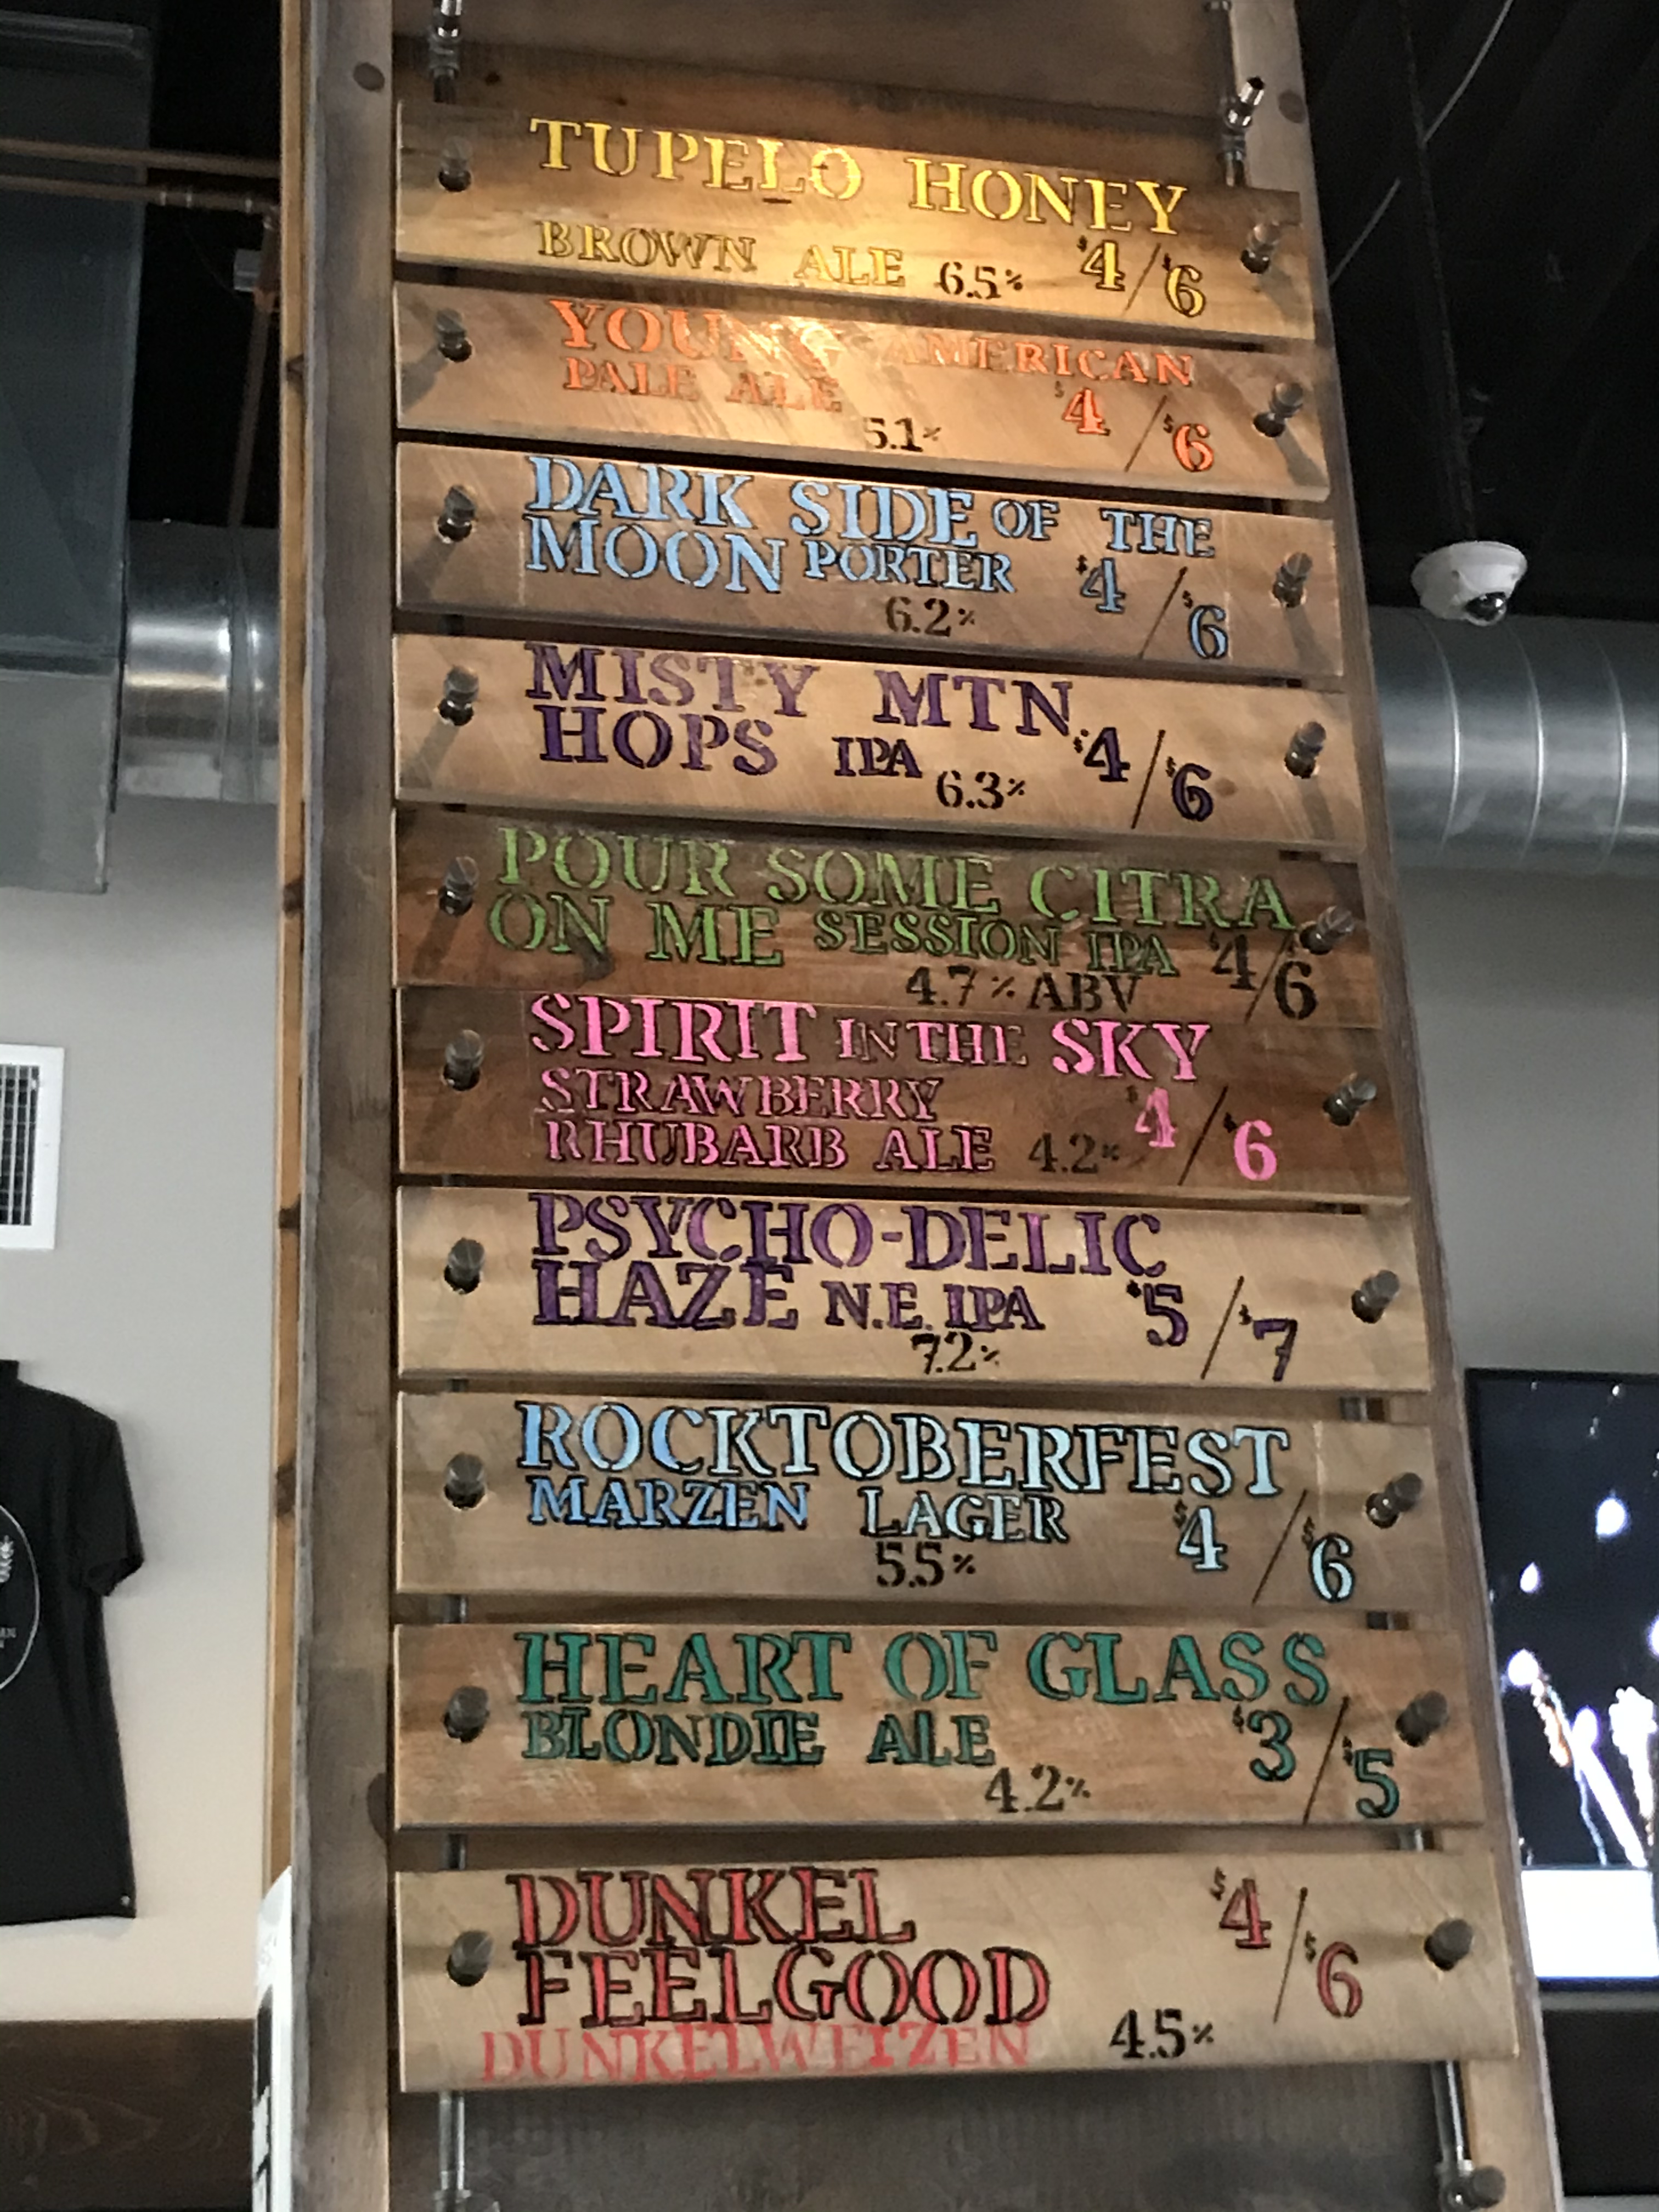 TUPELO HONEY
BROWN ALE 6.5% $4/$6
YOUNG AMERICAN
PALE ALE $4/$6
5.1%
DARK SIDE OF THE
MOON PORTER $4/$6
6.2%
MISTY MTN.
HOPS IPA $4/$6
6.3%
POUR SOME CITRA
ON ME SESSION IPA $4/$6
4.7% ABV
SPIRIT IN THE SKY
STRAWBERRY $4/$6
RHUBARB ALE 4.2%
PSYCHO-DELIC
HAZE N.E. IPA $5/$7
7.2%
ROCKTOBERFEST
MARZEN LAGER $4/$6
5.5%
HEART OF GLASS
BLONDIE ALE $3/$5
4.2%
DUNKEL $4/$6
FEELGOOD
DUNKELWEIZEN 4.5%